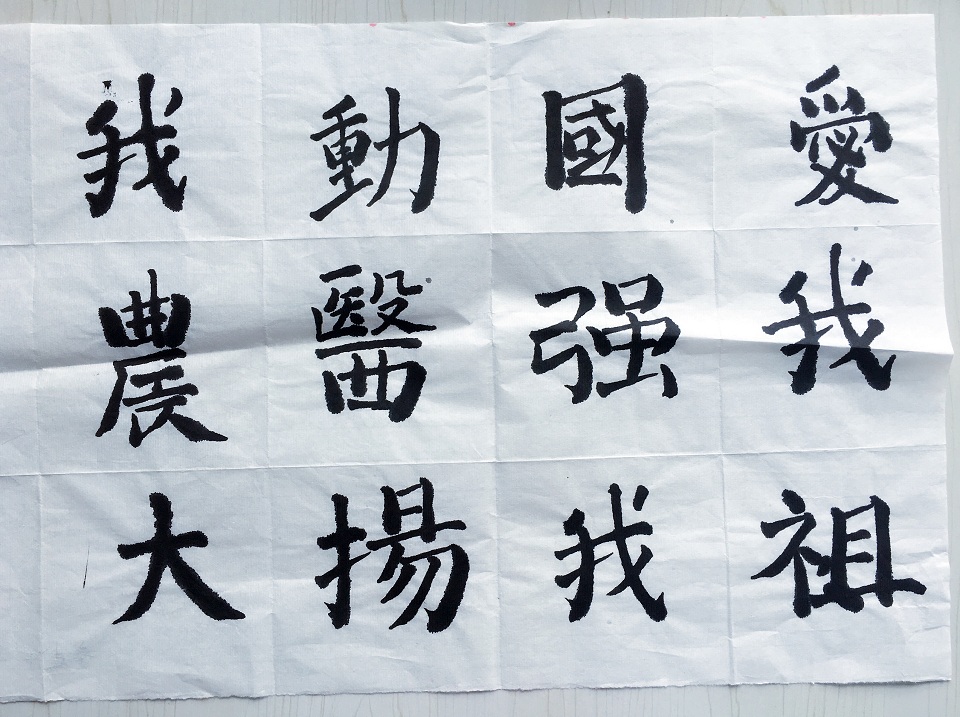 愛我祖
國强我
動醫揚
我農大